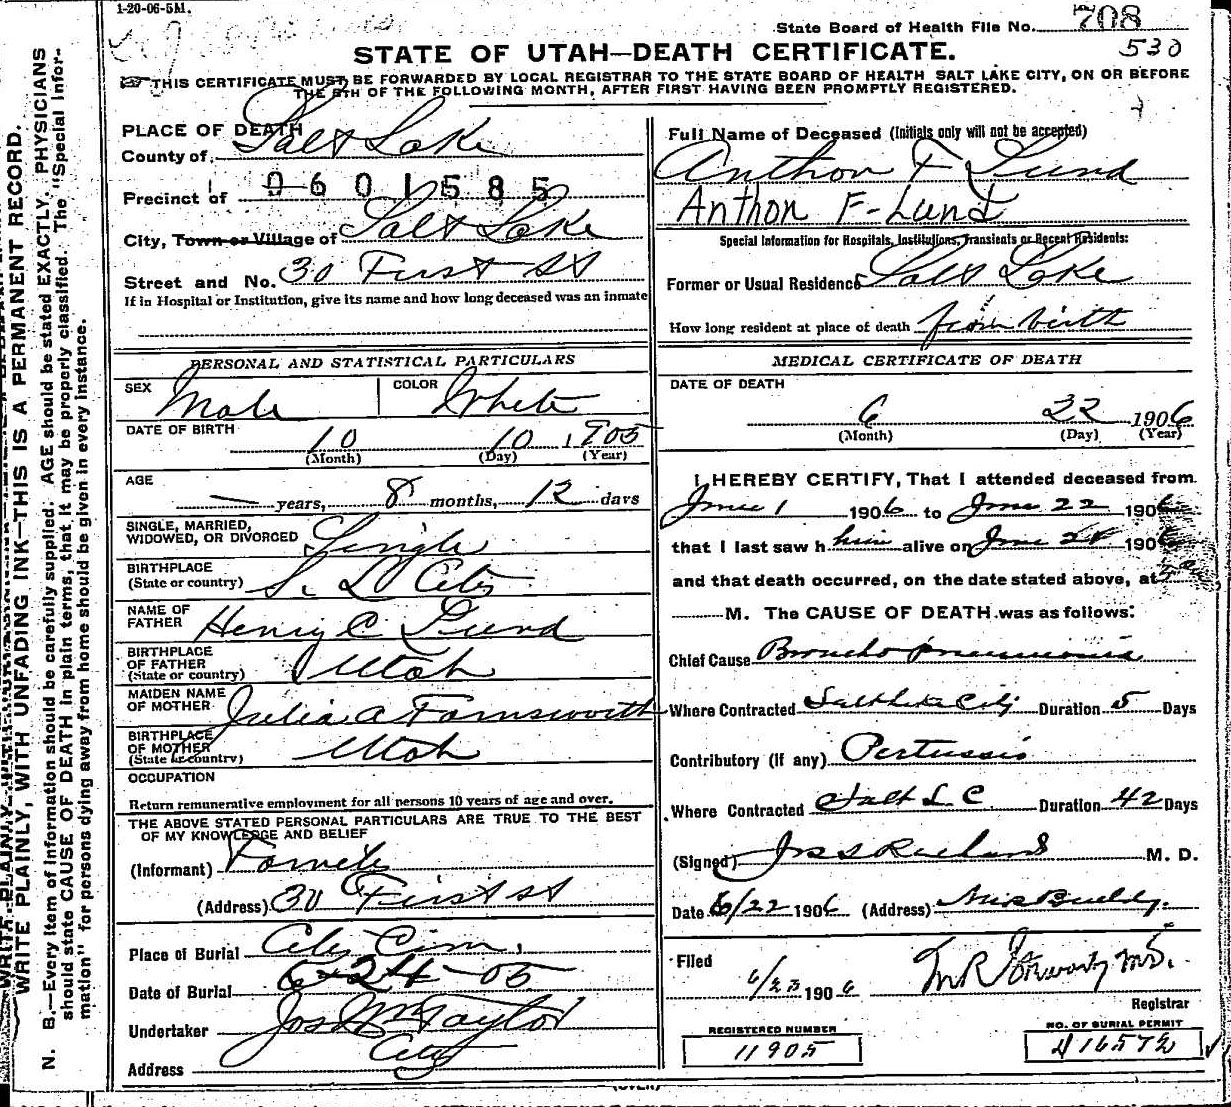 1-20-06-5M.
State Board of Health File No. 708
530
STATE OF UTAH—DEATH CERTIFICATE.
THIS CERTIFICATE MUST BE FORWARDED BY LOCAL REGISTRAR TO THE STATE BOARD OF HEALTH SALT LAKE CITY, ON OR BEFORE
THE 5TH OF THE FOLLOWING MONTH, AFTER FIRST HAVING BEEN PROMPTLY REGISTERED.
WRITE PLAINLY, WITH UNFADING INK—THIS IS A PERMANENT RECORD.
N. B.—Every item of information should be carefully supplied. AGE should be stated EXACTLY. PHYSICIANS
should state CAUSE OF DEATH in plain terms, that it may be properly classified. The "Special Infor-
mation" for persons dying away from home should be given in every instance.
PLACE OF DEATH
County of Salt Lake
Precinct of 0601585
City, Town or Village of Salt Lake
Street and No. 30 First St
If in Hospital or Institution, give its name and how long deceased was an inmate
PERSONAL AND STATISTICAL PARTICULARS
SEX Male COLOR White
DATE OF BIRTH 10 10 1905
(Month) (Day) (Year)
AGE — years, 8 months, 12 days
SINGLE, MARRIED,
WIDOWED, OR DIVORCED Single
BIRTHPLACE
(State or country) S. L City
NAME OF
FATHER Henry C Lund
BIRTHPLACE
OF FATHER
(State or country) Utah
MAIDEN NAME
OF MOTHER Julia A Farnsworth
BIRTHPLACE
OF MOTHER
(State or country) Utah
OCCUPATION
Return remunerative employment for all persons 10 years of age and over.
THE ABOVE STATED PERSONAL PARTICULARS ARE TRUE TO THE BEST
OF MY KNOWLEDGE AND BELIEF
(Informant)
(Address) 30 First st
Place of Burial City Cem,
Date of Burial 6-24-05
Undertaker Jos Wm Taylor
Address City
Full Name of Deceased (Initials only will not be accepted)
Anthon F Lund
Anthon F-Lund
Special Information for Hospitals, Institutions, Transients or Recent Residents:
Former or Usual Residence Salt Lake
How long resident at place of death from birth
MEDICAL CERTIFICATE OF DEATH
DATE OF DEATH
6 22 1906
(Month) (Day) (Year)
I HEREBY CERTIFY, That I attended deceased from
June 1 1906 to June 22 1906
that I last saw him alive on June 1906
and that death occurred, on the date stated above, at
M. The CAUSE OF DEATH was as follows:
Chief Cause Broncho pneumonia
Where Contracted Salt Lake City Duration 5 Days
Contributory (if any) Pertussis
Where Contracted Salt L C Duration 42 Days
(Signed) M. D.
Date 6/22 1906 (Address)
Filed
6/23 1906
Registrar
REGISTERED NUMBER
11905
NO. OF BURIAL PERMIT
416572
(OVER)